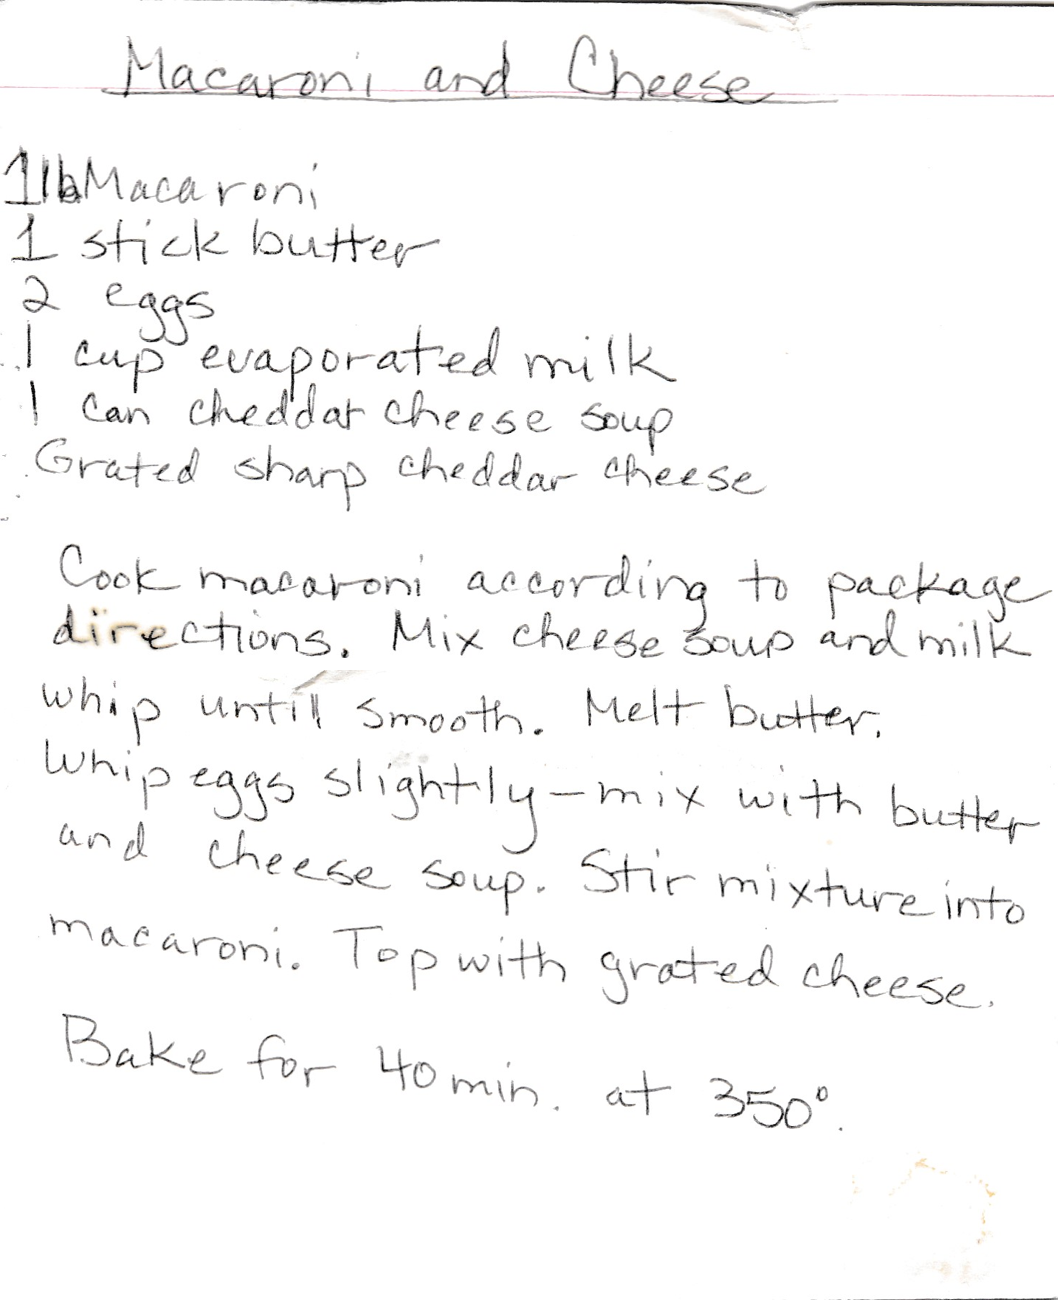 Macaroni and Cheese
1 lb Macaroni
1 stick butter
2 eggs
1 cup evaporated milk
1 can cheddar cheese soup
Grated sharp cheddar cheese
Cook macaroni according to package
directions. Mix cheese soup and milk
whip until smooth. Melt butter.
Whip eggs slightly - mix with butter
and cheese soup. Stir mixture into
macaroni. Top with grated cheese.
Bake for 40 min. at 350°.